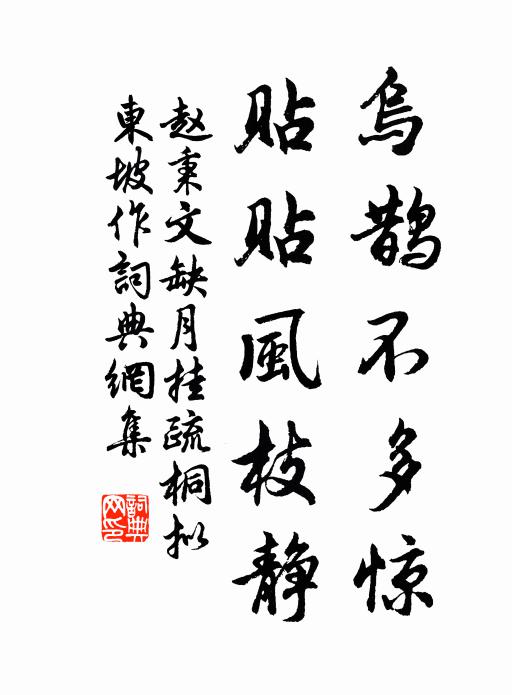 烏鵲不多惊
貼貼風枝静
赵秉文缺月挂疏桐拟
東坡作詞典網集
詞典网印